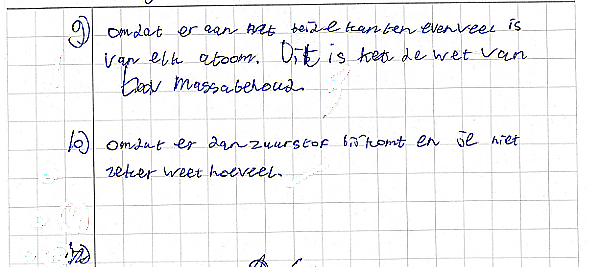 9) omdat er aan beide kanten evenveel is
van elk atoom. Dit is de wet van
massabehoud.
10) omdat er dan zuurstof bijkomt en je niet
zeker weet hoeveel.